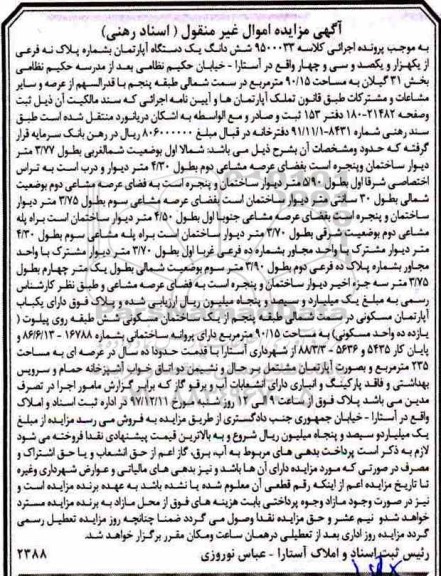 آگهی مزایده اموال غیر منقول ( اسناد رهنی)
به موجب پرونده اجرائی کلاسه ۹۵۰۰۰۳۳ شش دانگ یک دستگاه آپارتمان بشماره پلاک نه فرعی
از یکهزار و یکصد و سی و چهار واقع در آستارا - خیابان حکیم نظامی بعد از مدرسه حکیم نظامی
بخش ۳۱ گیلان به مساحت ۹۰/۱۵ مترمربع در سمت شمالی طبقه پنجم با قدرالسهم از عرصه و سایر
مشاعات و مشترکات طبق قانون تملک آپارتمان ها و آیین نامه اجرائی که سند مالکیت آن ذیل ثبت
وصفحه ۲۱۴۸۲-۱۸۰ دفتر ۱۵۳ ثبت و صادر و مع الواسطه به اشکان دریانورد منتقل شده است طبق
سند رهنی شماره ۸۴۳۱-۹۱/۱۱/۱ دفترخانه در قبال مبلغ ۸۰۶۰۰۰۰۰۰ ریال در رهن بانک سرمایه قرار
گرفته که حدود ومشخصات آن بشرح ذیل می باشد: شمالا اول بوضعیت شمالغربی بطول ۳/۷۷ متر
دیوار ساختمان وپنجره است بفضای عرصه مشاعی دوم بطول ۴/۳۰ متر دیوار و درب است به تراس
اختصاصی شرقا اول بطول ۵۹۰ متر دیوار ساختمان و پنجره است به فضای عرصه مشاعی دوم بوضعیت
شمالی بطول ۳۰ سانتی متر دیوار ساختمان است بفضای عرصه مشاعی سوم بطول ۳/۷۵ متر دیوار
ساختمان و پنجره است بفضای عرصه مشاعی جنوبا اول بطول ۴/۵۰ متر دیوار ساختمان است براه پله
مشاعی دوم بوضعیت شرقی بطول ۳/۷۰ متر دیوار ساختمان است براه پله مشاعی سوم بطول ۴/۳۰
متر دیوار مشترک با واحد مجاور بشماره ده فرعی غربا اول بطول ۳/۷۰ متر دیوار مشترک با واحد
مجاور بشماره پلاک ده فرعی دوم بطول ۳/۹۰ متر سوم بوضعیت شمالی بطول یک متر چهارم بطول
۳/۷۵ متر سه جزء اخیر دیوار ساختمان و پنجره است به فضای عرصه مشاعی و طبق نظر کارشناس
رسمی به مبلغ یک میلیارد و سیصد و پنجاه میلیون ریال ارزیابی شده و پلاک فوق دارای یکباب
آپارتمان مسکونی در قسمت شمالی طبقه پنجم از یک ساختمان مسکونی شش طبقه روی پیلوت (
یازده ده واحد مسکونی) به مساحت ۹۰/۱۵ مترمربع دارای پروانه ساختمانی بشماره ۱۶۷۸۸ - ۸۶/۶/۱۳ و
پایان کار ۵۴۳۵ و ۵۶۳۶ - ۸۸/۳/۳ از شهرداری آستارا با قدمت حدودا ده سال در عرصه ای به مساحت
۲۳۵ مترمربع و بصورت آپارتمان مشتمل بر حال و نشیمن دو اتاق خواب آشپزخانه حمام و سرویس
بهداشتی و فاقد پارکینگ و انباری دارای انشعابات آب و برق و گاز که برابر گزارش مامور اجرا در تصرف
مدین می باشد پلاک فوق از ساعت ۹ الی ۱۲ روز شنبه مورخ ۹۷/۱۲/۱۱ در اداره ثبت اسناد و املاک
واقع در آستارا - خیابان جمهوری جنب دادگستری از طریق مزایده به فروش می رسد مزایده از مبلغ
یک میلیاردو سیصد و پنجاه میلیون ریال شروع و به بالاترین قیمت پیشنهادی نقدا فروخته می شود
لازم به ذکر است پرداخت بدهی های مربوط به آب، برق، گاز اعم از حق انشعاب و یا حق اشتراک و
مصرف در صورتی که مورد مزایده دارای آن ها باشد و نیز بدهی های مالیاتی و عوارض شهرداری وغیره
تا تاریخ مزایده اعم از اینکه رقم قطعی آن معلوم شده یا نشده باشد به عهده برنده مزایده است و
نیز در صورت وجود مازاد وجوه پرداختی بابت هزینه های فوق از محل مازاد به برنده مزایده مسترد
خواهد شدو نیم عشر و حق مزایده نقدا وصول می گردد ضمنا چنانچه روز مزایده تعطیل رسمی
گردد مزایده روز اداری بعد از تعطیلی درهمان ساعت ومکان مقرر برگزار خواهد شد.
رئیس ثبت اسناد و املاک آستارا - عباس نوروزی
۲۳۸۸